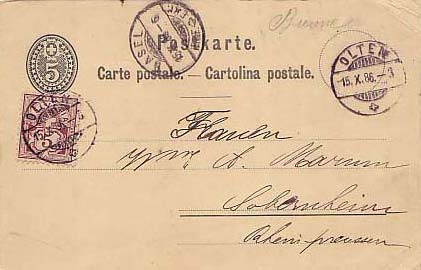 Postkarte.
Carte postale. — Cartolina postale.
5
OLTEN
15.X.86.—3
BASEL
OLTEN
5
A. Marum
Sobernheim
Rheinpreussen